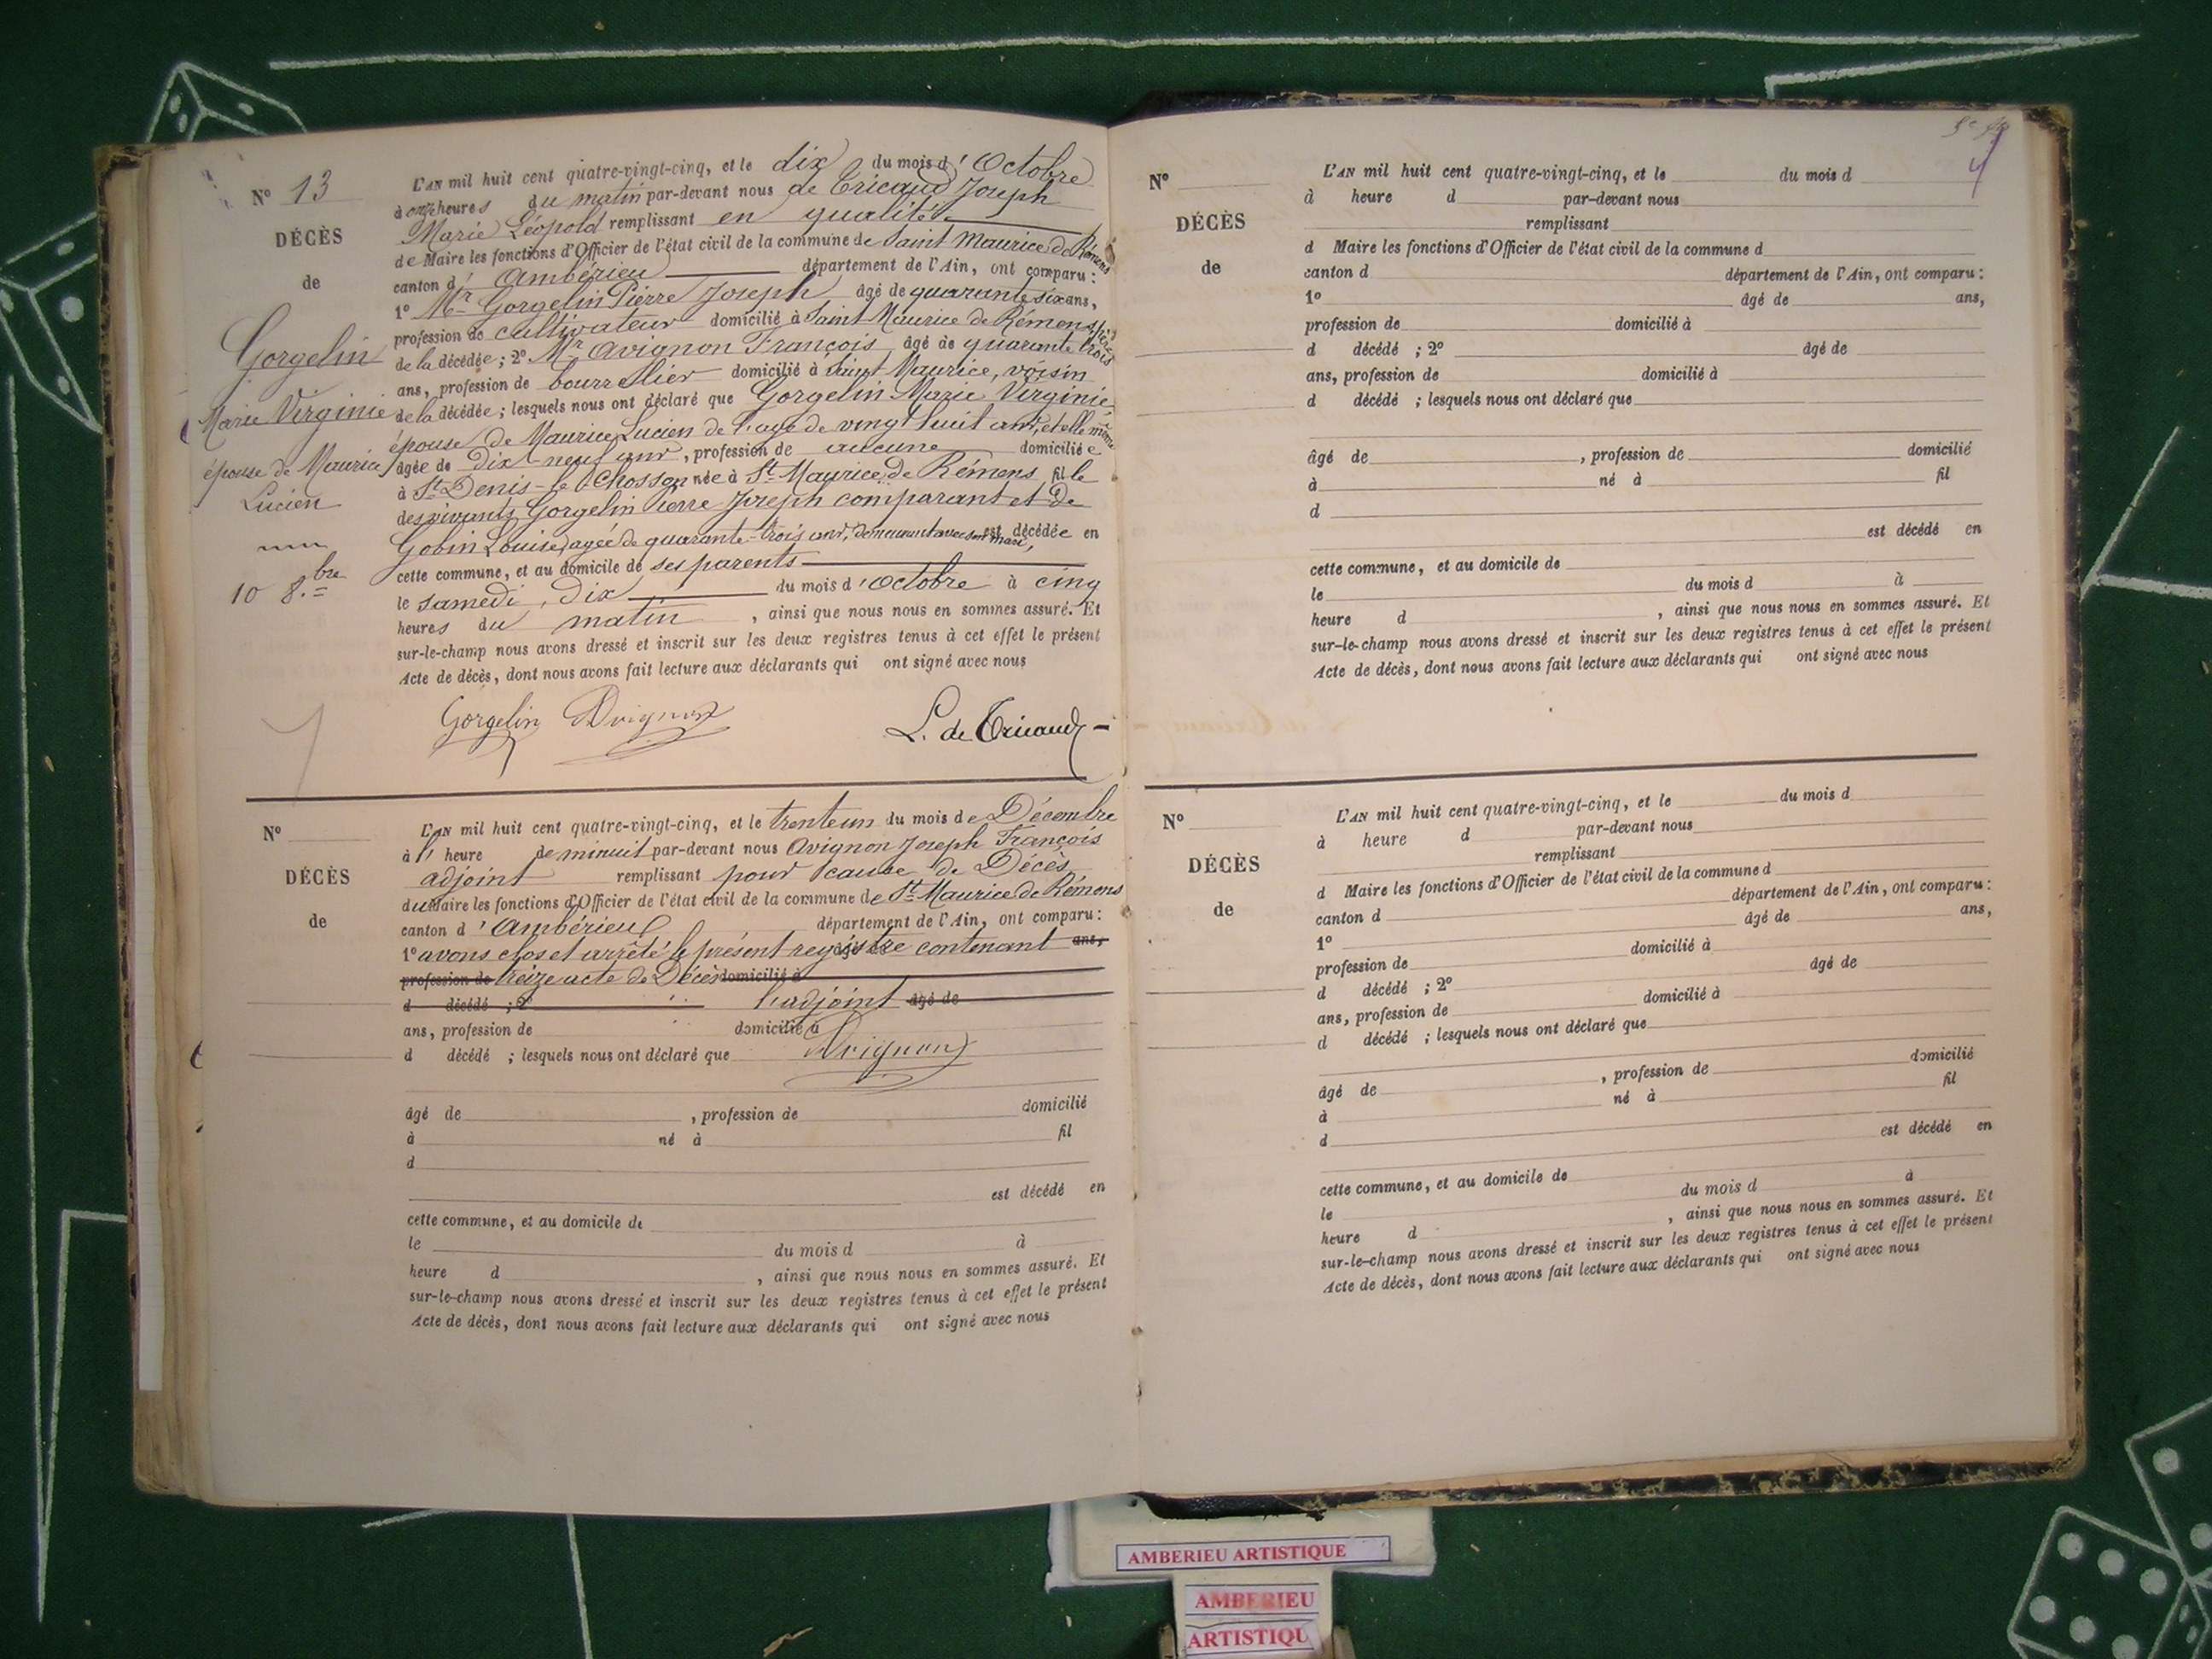 N° 13
DÉCÈS
de
Gorgelin
Marie Virginie
épouse de Maurice
Lucien
10 8.bre
L'AN mil huit cent quatre-vingt-cinq, et le dix du mois d'Octobre
à onze heures du matin par-devant nous de Tricaud Joseph
Marie Léopold remplissant en qualité
de Maire les fonctions d'Officier de l'état civil de la commune de Saint Maurice de Rémens
canton d'Ambérieu département de l'Ain, ont comparu :
1° Mr Gorgelin Pierre Joseph âgé de quarante six ans,
profession de cultivateur domicilié à Saint Maurice de Rémens, père
de la décédée ; 2° Mr Avignon François âgé de quarante trois
ans, profession de bourrelier domicilié à Saint Maurice, voisin
de la décédée ; lesquels nous ont déclaré que Gorgelin Marie Virginie
épouse de Maurice Lucien de l'age de vingt huit ans, et elle même
âgée de dix-neuf ans, profession de aucune domiciliée
à St Denis-le Chosson née à St Maurice de Rémens, fille
des vivants Gorgelin Pierre Joseph comparant et de
Gobin Louise, agée de quarante-trois ans, demeurant avec son mari, est décédée en
cette commune, et au domicile de ses parents
le samedi, dix du mois d'Octobre à cinq
heures du matin, ainsi que nous nous en sommes assuré. Et
sur-le-champ nous avons dressé et inscrit sur les deux registres tenus à cet effet le présent
Acte de décès, dont nous avons fait lecture aux déclarants qui ont signé avec nous
Gorgelin Avignon L. de Tricaud
N°
DÉCÈS
de
L'AN mil huit cent quatre-vingt-cinq, et le trente un du mois de Décembre
à l'heure de minuit par-devant nous Avignon Joseph François
adjoint remplissant pour cause de Décès
du Maire les fonctions d'Officier de l'état civil de la commune de St Maurice de Rémens
canton d'Ambérieu département de l'Ain, ont comparu :
1° avons clos et arrêté le présent registre contenant ans,
profession de treize acte de Décès domicilié à
d décédé ; 2° l'adjoint âgé de
ans, profession de domicilié à
d décédé ; lesquels nous ont déclaré que Avignon
âgé de , profession de domicilié
à né à fil
d
est décédé en
cette commune, et au domicile de
le du mois d à
heure d , ainsi que nous nous en sommes assuré. Et
sur-le-champ nous avons dressé et inscrit sur les deux registres tenus à cet effet le présent
Acte de décès, dont nous avons fait lecture aux déclarants qui ont signé avec nous
4
N°
DÉCÈS
de
L'AN mil huit cent quatre-vingt-cinq, et le du mois d
à heure d par-devant nous
remplissant
d Maire les fonctions d'Officier de l'état civil de la commune d
canton d département de l'Ain, ont comparu :
1° âgé de ans,
profession de domicilié à
d décédé ; 2° âgé de
ans, profession de domicilié à
d décédé ; lesquels nous ont déclaré que
âgé de , profession de domicilié
à né à fil
d
est décédé en
cette commune, et au domicile de
le du mois d à
heure d , ainsi que nous nous en sommes assuré. Et
sur-le-champ nous avons dressé et inscrit sur les deux registres tenus à cet effet le présent
Acte de décès, dont nous avons fait lecture aux déclarants qui ont signé avec nous
N°
DÉCÈS
de
L'AN mil huit cent quatre-vingt-cinq, et le du mois d
à heure d par-devant nous
remplissant
d Maire les fonctions d'Officier de l'état civil de la commune d
canton d département de l'Ain, ont comparu :
1° âgé de ans,
profession de domicilié à
d décédé ; 2° âgé de
ans, profession de domicilié à
d décédé ; lesquels nous ont déclaré que
âgé de , profession de domicilié
à né à fil
d
est décédé en
cette commune, et au domicile de
le du mois d à
heure d , ainsi que nous nous en sommes assuré. Et
sur-le-champ nous avons dressé et inscrit sur les deux registres tenus à cet effet le présent
Acte de décès, dont nous avons fait lecture aux déclarants qui ont signé avec nous
AMBERIEU ARTISTIQUE
AMBERIEU
ARTISTIQU